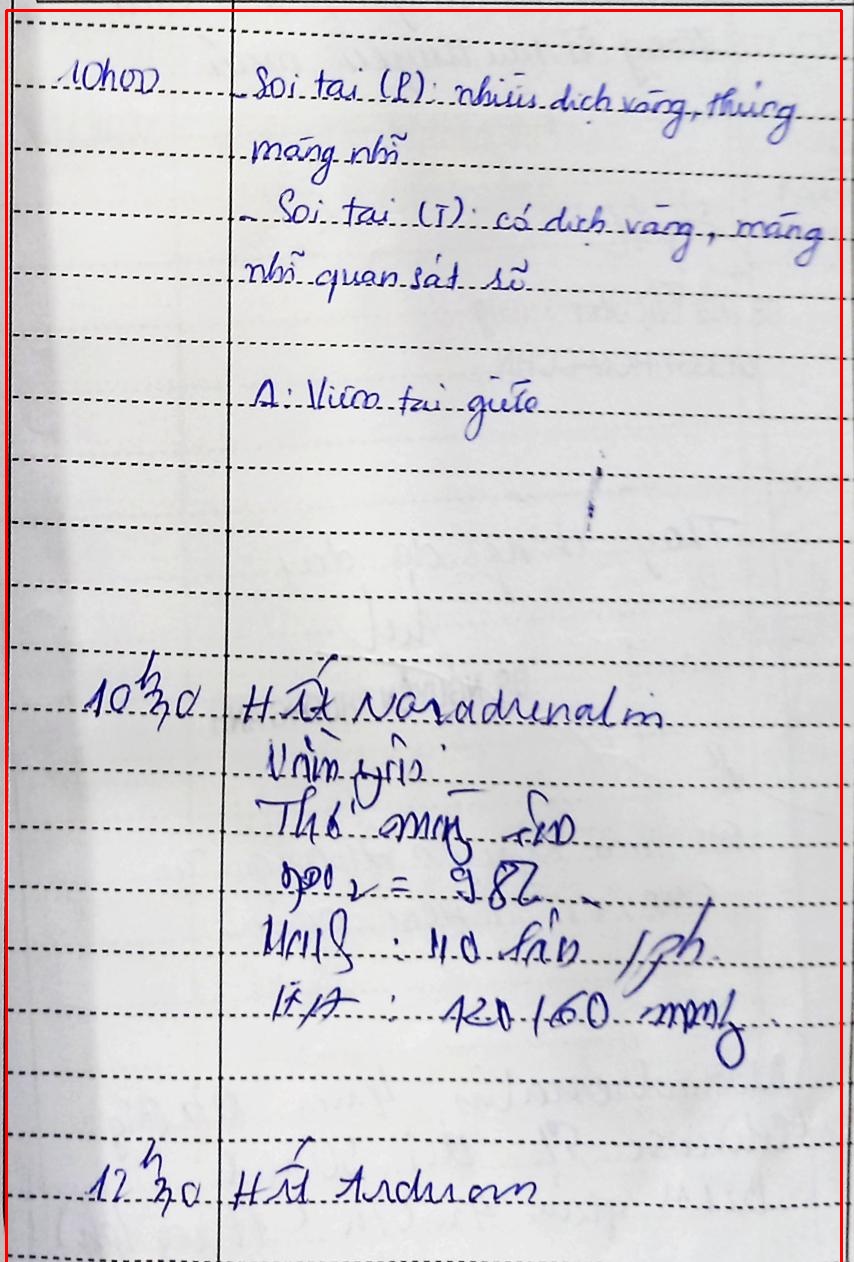 10h00 - Soi tai (P): nhiều dịch vàng, thủng
màng nhĩ
- Soi tai (T): có dịch vàng, màng
nhĩ quan sát rõ
Δ: Viêm tai giữa
10h30 Hết Noradrenalin
Nằm yên
Thở máy
SpO2 = 98%
Mạch : 110 lần /ph
HA : 120/60 mmHg
12h30 Hết